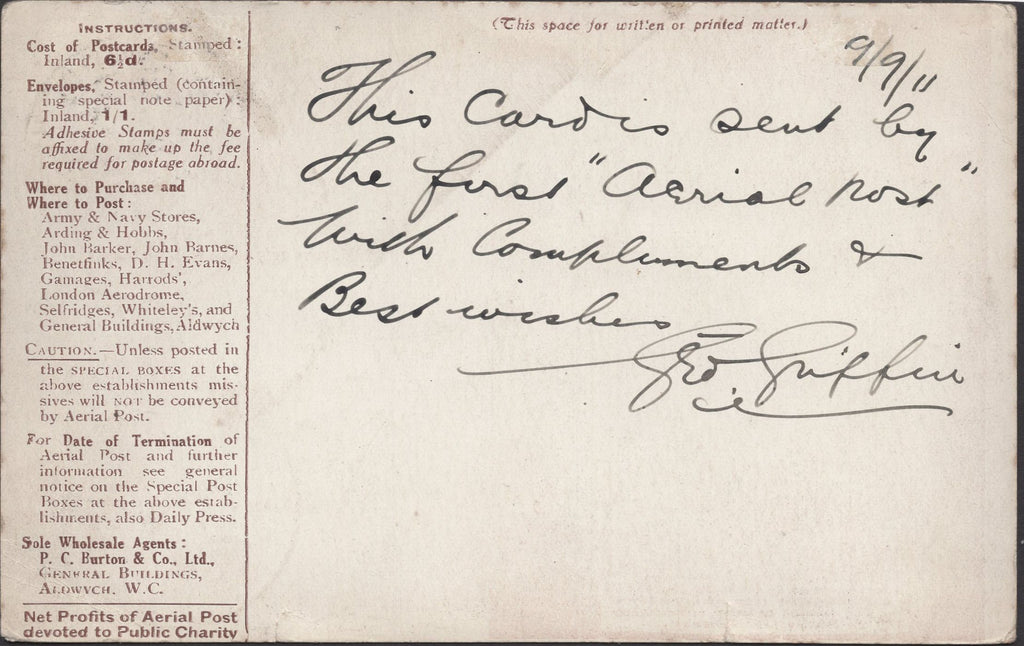 INSTRUCTIONS.
Cost of Postcards, Stamped:
Inland, 6½d.
Envelopes, Stamped (contain-
ing special note paper):
Inland, 1/1.
Adhesive Stamps must be
affixed to make up the fee
required for postage abroad.
Where to Purchase and
Where to Post:
Army & Navy Stores,
Arding & Hobbs,
John Barker, John Barnes,
Benetfinks, D. H. Evans,
Gamages, Harrods',
London Aerodrome,
Selfridges, Whiteley's, and
General Buildings, Aldwych
CAUTION.—Unless posted in
the SPECIAL BOXES at the
above establishments mis-
sives will NOT be conveyed
by Aerial Post.
For Date of Termination of
Aerial Post and further
information see general
notice on the Special Post
Boxes at the above estab-
lishments, also Daily Press.
Sole Wholesale Agents:
P. C. Burton & Co., Ltd.,
GENERAL BUILDINGS,
ALDWYCH. W.C.
Net Profits of Aerial Post
devoted to Public Charity
(This space for written or printed matter.)
9/9/11
This Card is sent by
the first "Aerial Post"
With Compliments &
Best wishes
Geo. Griffin